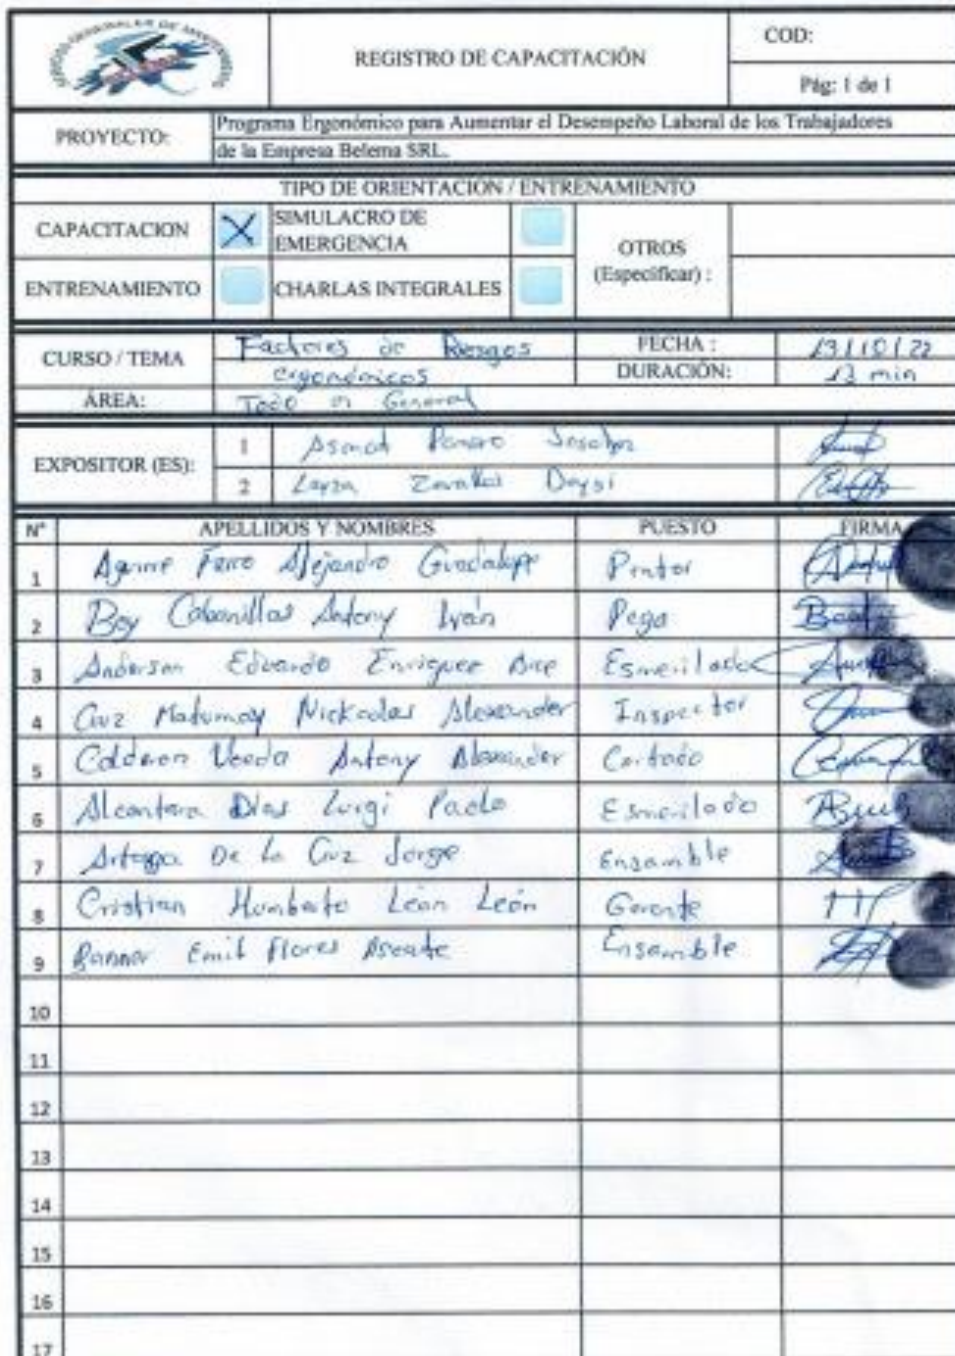 REGISTRO DE CAPACITACIÓN
COD:
Pág: 1 de 1
PROYECTO:
Programa Ergonómico para Aumentar el Desempeño Laboral de los Trabajadores
de la Empresa Belema SRL.
TIPO DE ORIENTACION / ENTRENAMIENTO
CAPACITACION X SIMULACRO DE EMERGENCIA
OTROS (Especificar) :
ENTRENAMIENTO CHARLAS INTEGRALES
CURSO / TEMA Factores de Riesgos
ergonómicos
FECHA : 13/10/22
DURACIÓN: min
ÁREA: Todo en General
EXPOSITOR (ES):
1 Asmat
2 Layza Zavallos Daysi
N° APELLIDOS Y NOMBRES PUESTO FIRMA
1 Aguirre Farro Alejandro Guadalupe Pintor
2 Boy Cabanillas Antony Iván Pega
3 Anderson Eduardo Enriquez Esmerilado
4 Cruz Alexander Inspector
5 Calderon Antony Alexander Cortado
6 Alcantara Dias Luigi Paolo Esmerilado
7 De La Cruz Jorge Ensamble
8 Cristian Humberto León León Gerente
9 Emil Flores Ensamble
10
11
12
13
14
15
16
17